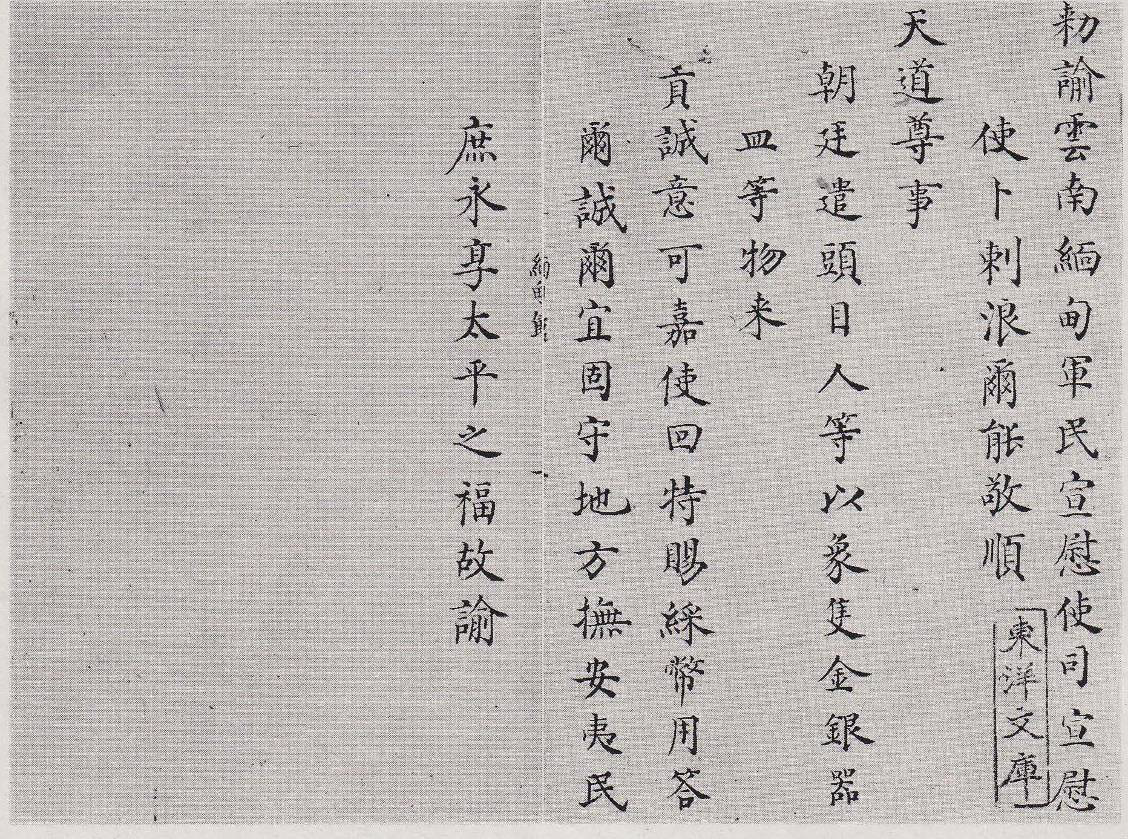 勅諭雲南緬甸軍民宣慰使司宣慰
使卜剌浪爾能敬順
東洋文庫
天道尊事
朝廷遣頭目人等以象隻金銀器
皿等物来
貢誠意可嘉使回特賜綵幣用答
爾誠爾宜固守地方撫安夷民
緬甸館
庶永享太平之福故諭